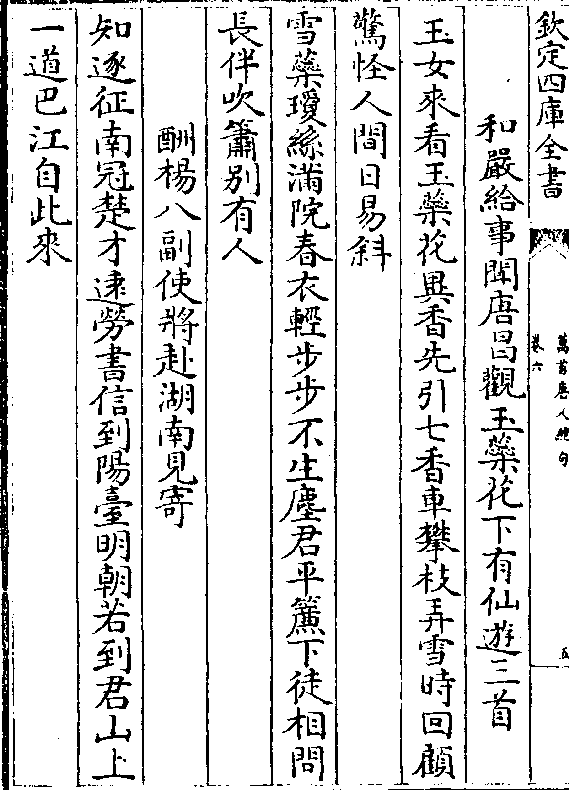 欽定四庫全書
萬首唐人絶句
卷六
五
和嚴給事聞唐昌觀玉蘂花下有仙遊三首
玉女來看玉蘂花異香先引七香車攀枝弄雪時回顧
驚怪人間日易斜
雪蘂瓊絲滿院春衣輕步步不生塵君平簾下徒相問
長伴吹簫別有人
酬楊八副使將赴湖南見寄
知逐征南冠楚才逺勞書信到陽臺明朝若到君山上
一道巴江自此來